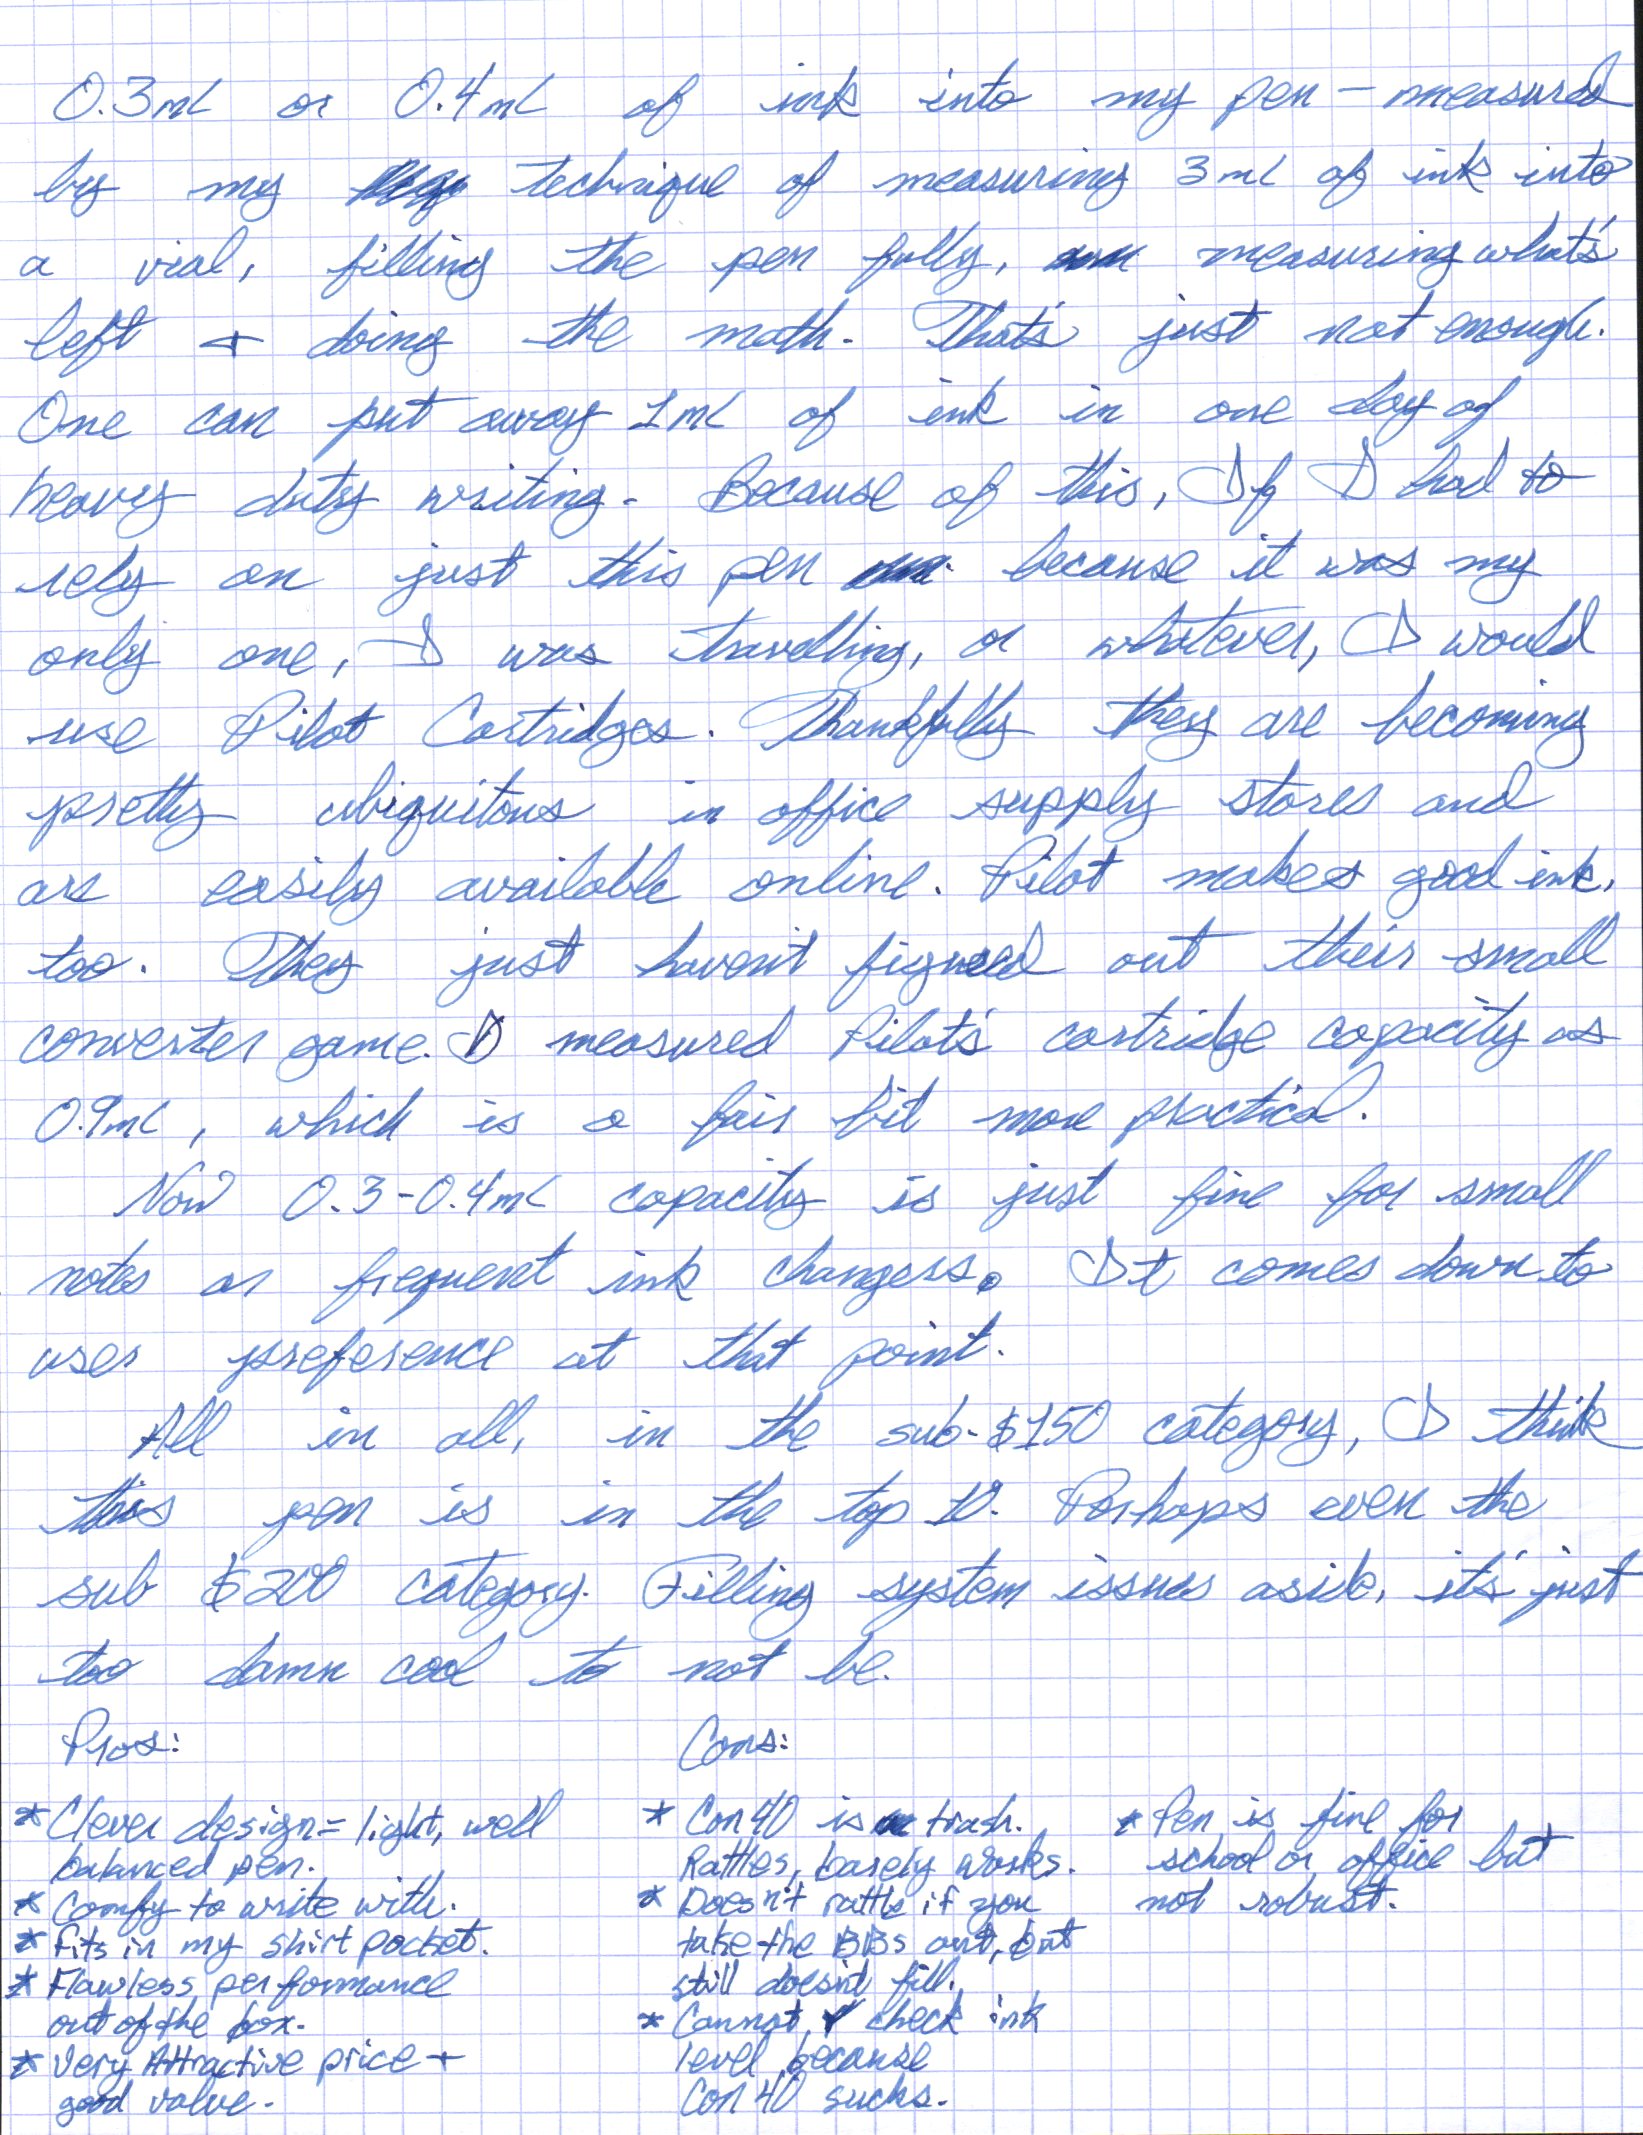 0.3mL or 0.4mL of ink into my pen – measured
by my technique of measuring 3mL of ink into
a vial, filling the pen fully, measuring what's
left + doing the math. That's just not enough.
One can put away 1mL of ink in one day of
heavy duty writing. Because of this, If I had to
rely on just this pen because it was my
only one, I was travelling, or whatever, I would
use Pilot Cartridges. Thankfully they are becoming
pretty ubiquitous in office supply stores and
are easily available online. Pilot makes good ink,
too. They just haven't figured out their small
converter game. I measured Pilot's cartridge capacity as
0.9mL, which is a fair bit more practical.
Now 0.3-0.4mL capacity is just fine for small
notes or frequent ink changers. It comes down to
user preference at that point.
All in all, in the sub-$150 category, I think
this pen is in the top 10. Perhaps even the
sub $200 category. Filling system issues aside, it's just
too damn cool to not be.
Pros:
* Clever design = light, well
balanced pen.
* Comfy to write with.
* Fits in my shirt pocket.
* Flawless performance
out of the box.
* Very Attractive price +
good value.
Cons:
* Con 40 is trash.
Rattles, barely works.
* Doesn't rattle if you
take the BBs out, but
still doesn't fill.
* Cannot check ink
level because
Con 40 sucks.
* Pen is fine for
school or office but
not robust.